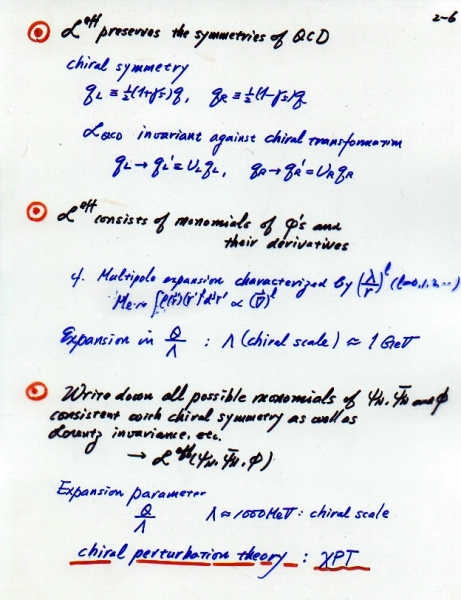 2-6
L^eff preserves the symmetries of QCD
chiral symmetry
q_L ≡ ½(1+γ5)q, q_R ≡ ½(1-γ5)q
L_QCD invariant against chiral transformation
q_L → q_L' = U_L q_L, q_R → q_R' = U_R q_R
L^eff consists of monomials of φ's and
their derivatives
cf. Multipole expansion characterized by (λ/r)^l (l=0,1,2,...)
Expansion in Q/Λ : Λ (chiral scale) ≈ 1 GeV
Write down all possible monomials of ψ_N, ψ̄_N and φ
consistent with chiral symmetry as well as
Lorentz invariance, etc.
→ L^eff(ψ_N, ψ̄_N, φ)
Expansion parameter
Q/Λ Λ ≈ 1000 MeV : chiral scale
chiral perturbation theory : χPT